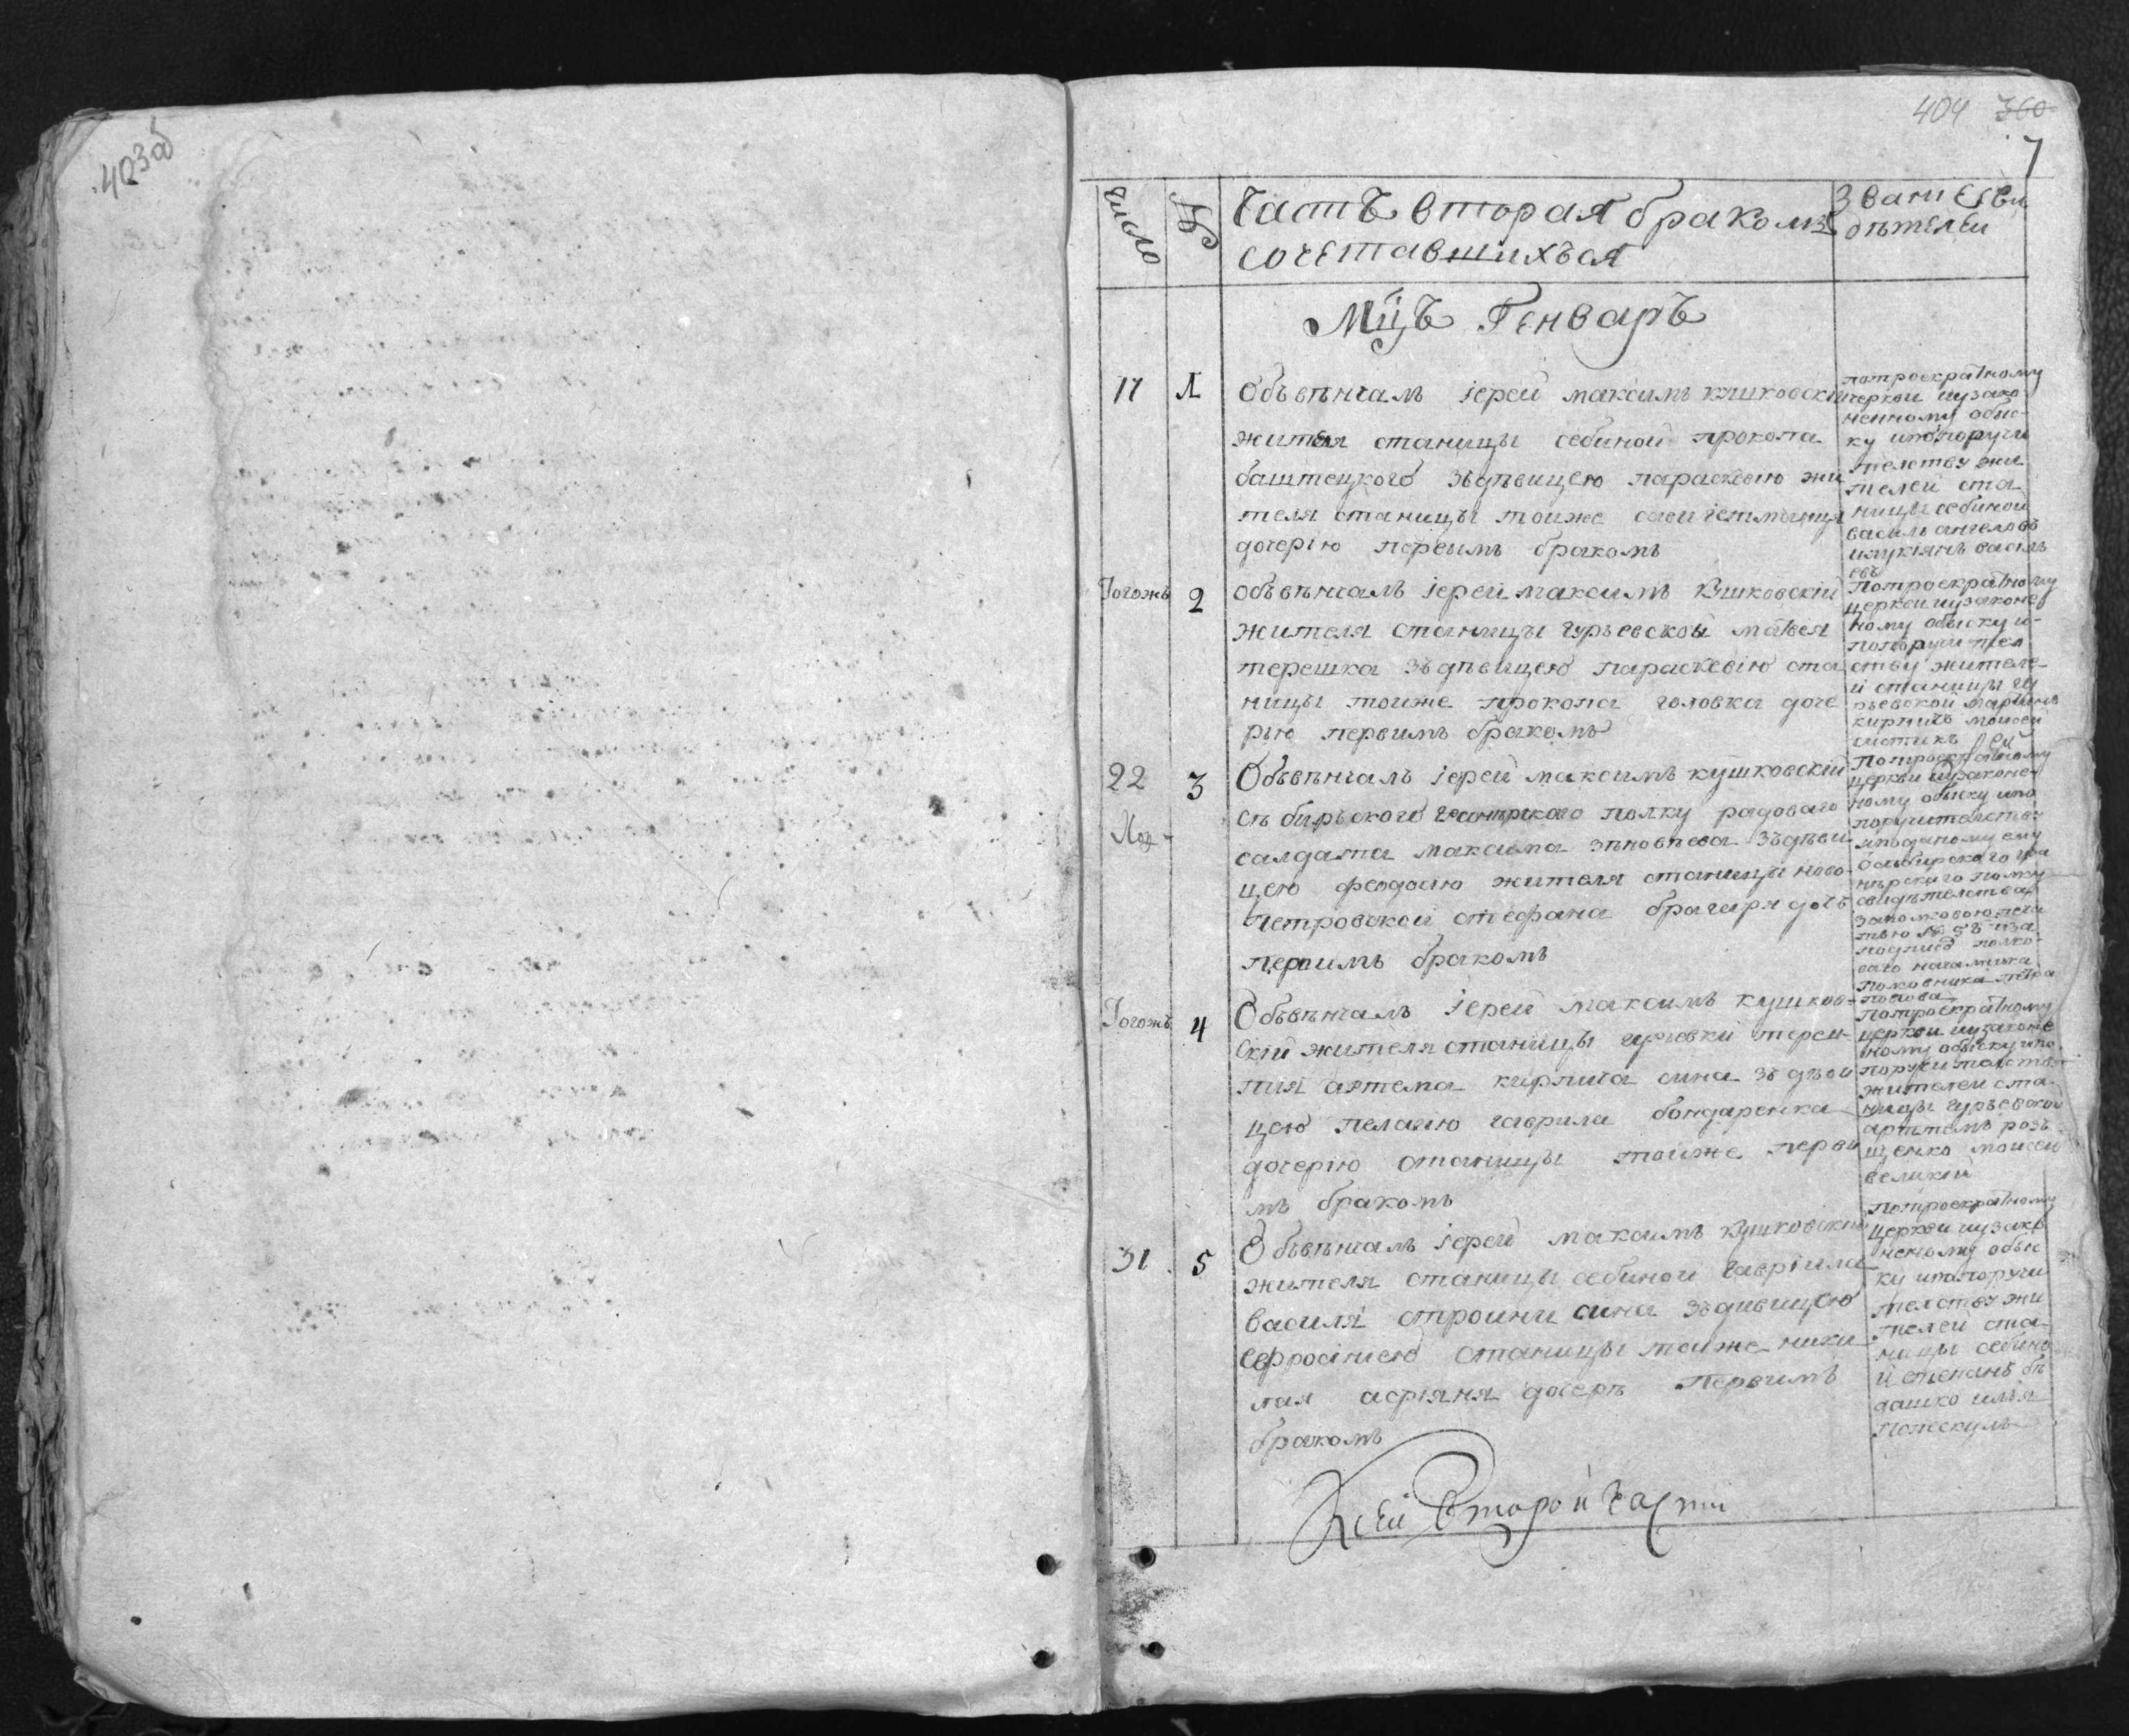 403об
404 360
7
число
№
Часть вторая бракомъ
сочетавшихъся
Звание сви
дѣтелей
Мцъ Генваръ
17
1
Объвѣнчалъ іерей максимъ кушковскій
жителя станицы себиной прокопа
баштецкого зъдѣвицею параскевію жи
теля станицы тоиже
дочерію первымъ бракомъ
потроекратному
церкви иузако
ненному обис
ку ипопоручи
телству жи
телей ста
ницы себиной
василь ангеловъ
илукіянъ василь
евъ
Тогожъ
2
объвѣнчалъ іерей максимъ Кушковскій
жителя станицы гурьевской матвея
терешка зъдѣвицею параскевію ста
ницы тоиже прокопа головка доче
рью первимъ бракомъ
Потроекратному
церкви иузаконе
ному обыску и
попоручител
ству жителе
й станицы гу
рьевской мартинъ
кирпичъ моисей
22
3
Объвѣнчалъ іерей максимъ кушковскій
сѣбирьского полку радоваго
салдата максима зъдѣви
цею феодосію жителя станицы ново
петровской стефана дочъ
первимъ бракомъ
Потроекратному
церкви иузаконе
ному обыску ипо
поручителству
иподаному ему
осьбирского гре
нѣрского полку
свидѣтелства
заполковою печа
тью
подписе полко
ваго началника
полковника петра
попова
Тогожъ
4
Объвѣнчалъ іерей максимъ кушков
скій жителя станицы гурьевки терен
тия артема кирпича сина зъдѣви
цею пелагію гаврила бондаренка
дочерію станицы тоиже перви
мъ бракомъ
Потроекратному
церкви иузаконе
ному обыску ипо
поручителству
жителей ста
ницы гурьевской
артѣмъ розъ
щенко моисей
великий
31
5
Объвѣнчалъ іерей максимъ Кушковскій
жителя станицы себиной гавріила
василя строини сина зъдивицею
евфросинею станицы тоиже нико
лая дочеръ Первимъ
бракомъ
Потроекратному
церкви иузако
неному обис
ку ипопоручи
телству жи
телей ста
ницы себино
й степанъ бѣ
дашко илья
Попескулъ
Ксей Второй части